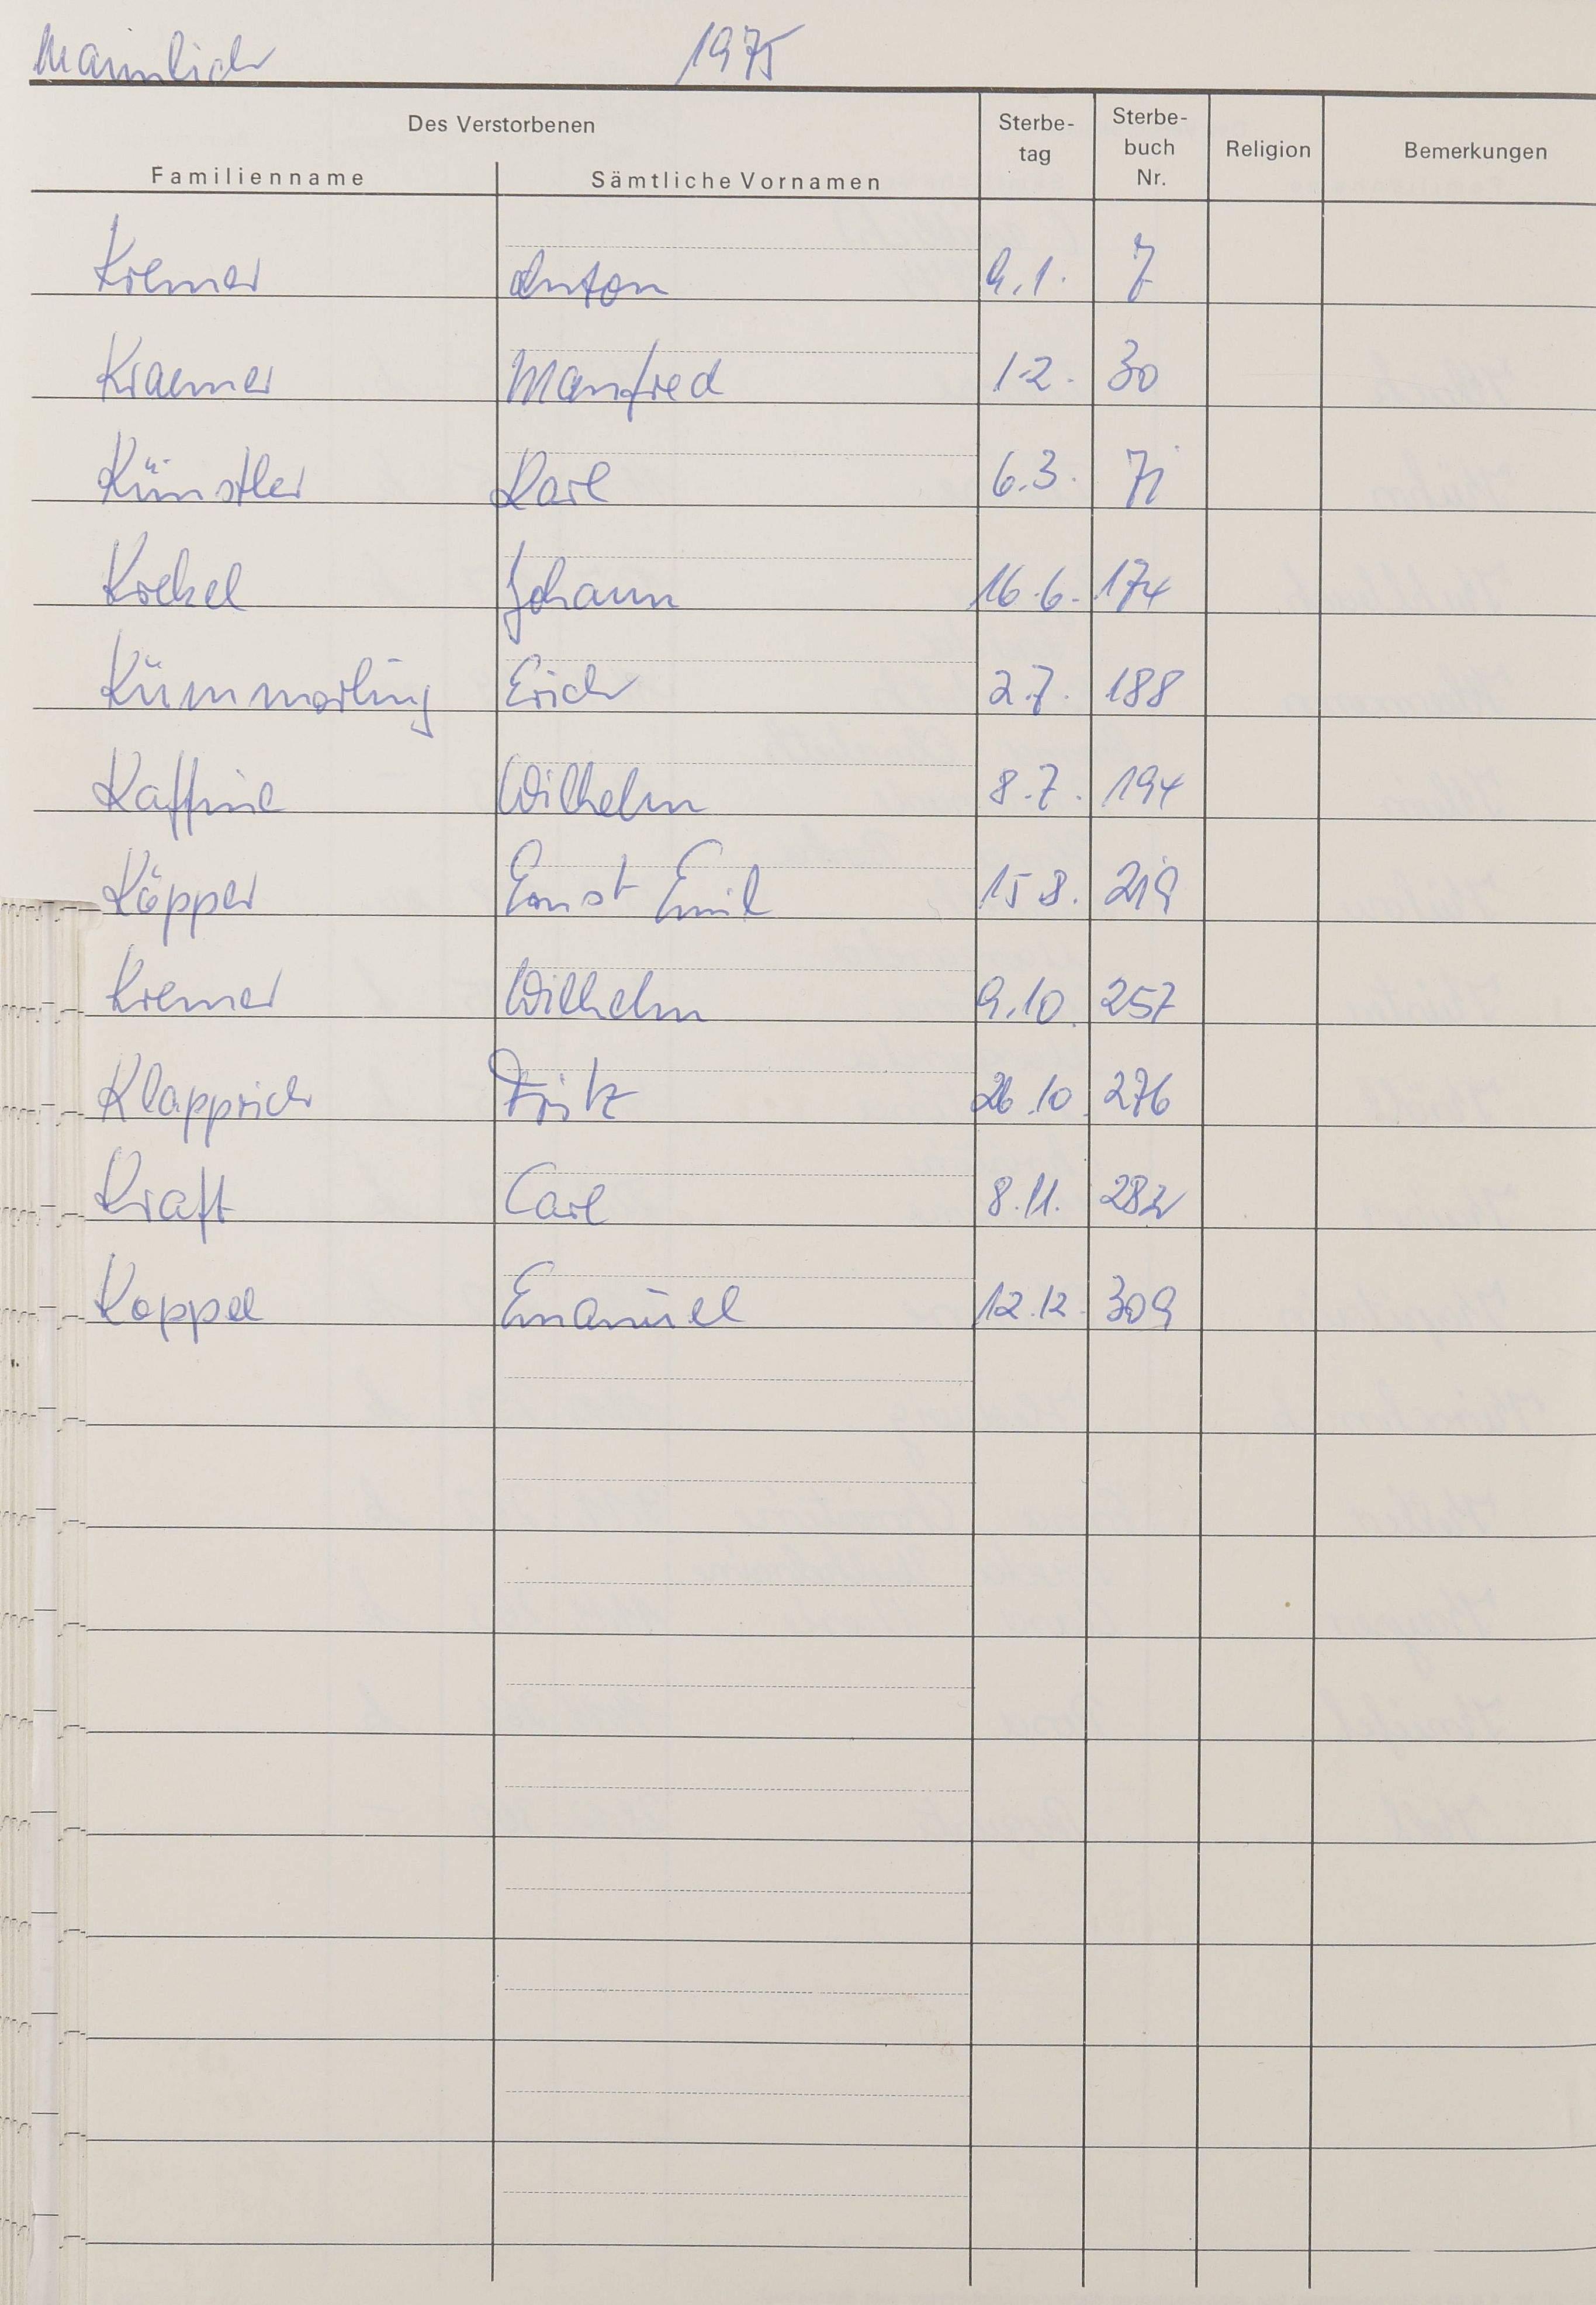 Männlich 1975
Des Verstorbenen
Familienname Sämtliche Vornamen Sterbe-tag Sterbe-buch Nr. Religion Bemerkungen
Kremer Anton 9.1. 7
Kraemer Manfred 1.2. 30
Künstler Karl 6.3. 71
Krekel Johann 16.6. 174
Kümmerling Erich 2.7. 188
Kaffine Wilhelm 8.7. 194
Köpper Ernst Emil 15 8. 219
Kremer Wilhelm 9.10. 257
Klapprich Fritz 26.10. 276
Kraft Carl 8.11. 282
Koppel Emanuel 12.12. 309